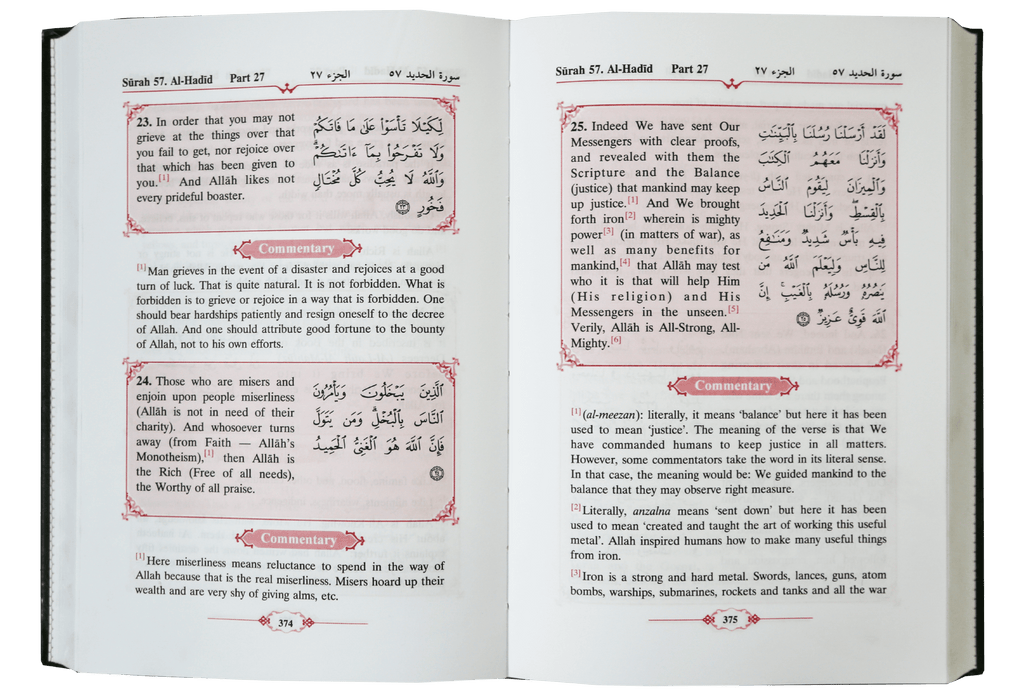 Sūrah 57. Al-Hadīd Part 27 الجزء ٢٧ سورة الحديد ٥٧
23. In order that you may not
grieve at the things over that
you fail to get, nor rejoice over
that which has been given to
you.[1] And Allāh likes not
every prideful boaster.
لِّكَيْلَا تَأْسَوْا۟ عَلَىٰ مَا فَاتَكُمْ
وَلَا تَفْرَحُوا۟ بِمَآ ءَاتَىٰكُمْ ۗ
وَٱللَّهُ لَا يُحِبُّ كُلَّ مُخْتَالٍ
فَخُورٍ ٢٣
Commentary
[1]Man grieves in the event of a disaster and rejoices at a good
turn of luck. That is quite natural. It is not forbidden. What is
forbidden is to grieve or rejoice in a way that is forbidden. One
should bear hardships patiently and resign oneself to the decree
of Allah. And one should attribute good fortune to the bounty
of Allah, not to his own efforts.
24. Those who are misers and
enjoin upon people miserliness
(Allāh is not in need of their
charity). And whosoever turns
away (from Faith — Allāh's
Monotheism),[1] then Allāh is
the Rich (Free of all needs),
the Worthy of all praise.
ٱلَّذِينَ يَبْخَلُونَ وَيَأْمُرُونَ
ٱلنَّاسَ بِٱلْبُخْلِ ۗ وَمَن يَتَوَلَّ
فَإِنَّ ٱللَّهَ هُوَ ٱلْغَنِىُّ ٱلْحَمِيدُ
٢٤
Commentary
[1]Here miserliness means reluctance to spend in the way of
Allah because that is the real miserliness. Misers hoard up their
wealth and are very shy of giving alms, etc.
374
Sūrah 57. Al-Hadīd Part 27 الجزء ٢٧ سورة الحديد ٥٧
25. Indeed We have sent Our
Messengers with clear proofs,
and revealed with them the
Scripture and the Balance
(justice) that mankind may keep
up justice.[1] And We brought
forth iron[2] wherein is mighty
power[3] (in matters of war), as
well as many benefits for
mankind,[4] that Allāh may test
who it is that will help Him
(His religion) and His
Messengers in the unseen.[5]
Verily, Allāh is All-Strong, All-
Mighty.[6]
لَقَدْ أَرْسَلْنَا رُسُلَنَا بِٱلْبَيِّنَٰتِ
وَأَنزَلْنَا مَعَهُمُ ٱلْكِتَٰبَ
وَٱلْمِيزَانَ لِيَقُومَ ٱلنَّاسُ
بِٱلْقِسْطِ ۖ وَأَنزَلْنَا ٱلْحَدِيدَ
فِيهِ بَأْسٌ شَدِيدٌ وَمَنَٰفِعُ
لِلنَّاسِ وَلِيَعْلَمَ ٱللَّهُ مَن
يَنصُرُهُۥ وَرُسُلَهُۥ بِٱلْغَيْبِ ۚ إِنَّ
ٱللَّهَ قَوِىٌّ عَزِيزٌ ٢٥
Commentary
[1](al-meezan): literally, it means 'balance' but here it has been
used to mean 'justice'. The meaning of the verse is that We
have commanded humans to keep justice in all matters.
However, some commentators take the word in its literal sense.
In that case, the meaning would be: We guided mankind to the
balance that they may observe right measure.
[2]Literally, anzalna means 'sent down' but here it has been
used to mean 'created and taught the art of working this useful
metal'. Allah inspired humans how to make many useful things
from iron.
[3]Iron is a strong and hard metal. Swords, lances, guns, atom
bombs, warships, submarines, rockets and tanks and all the war
375